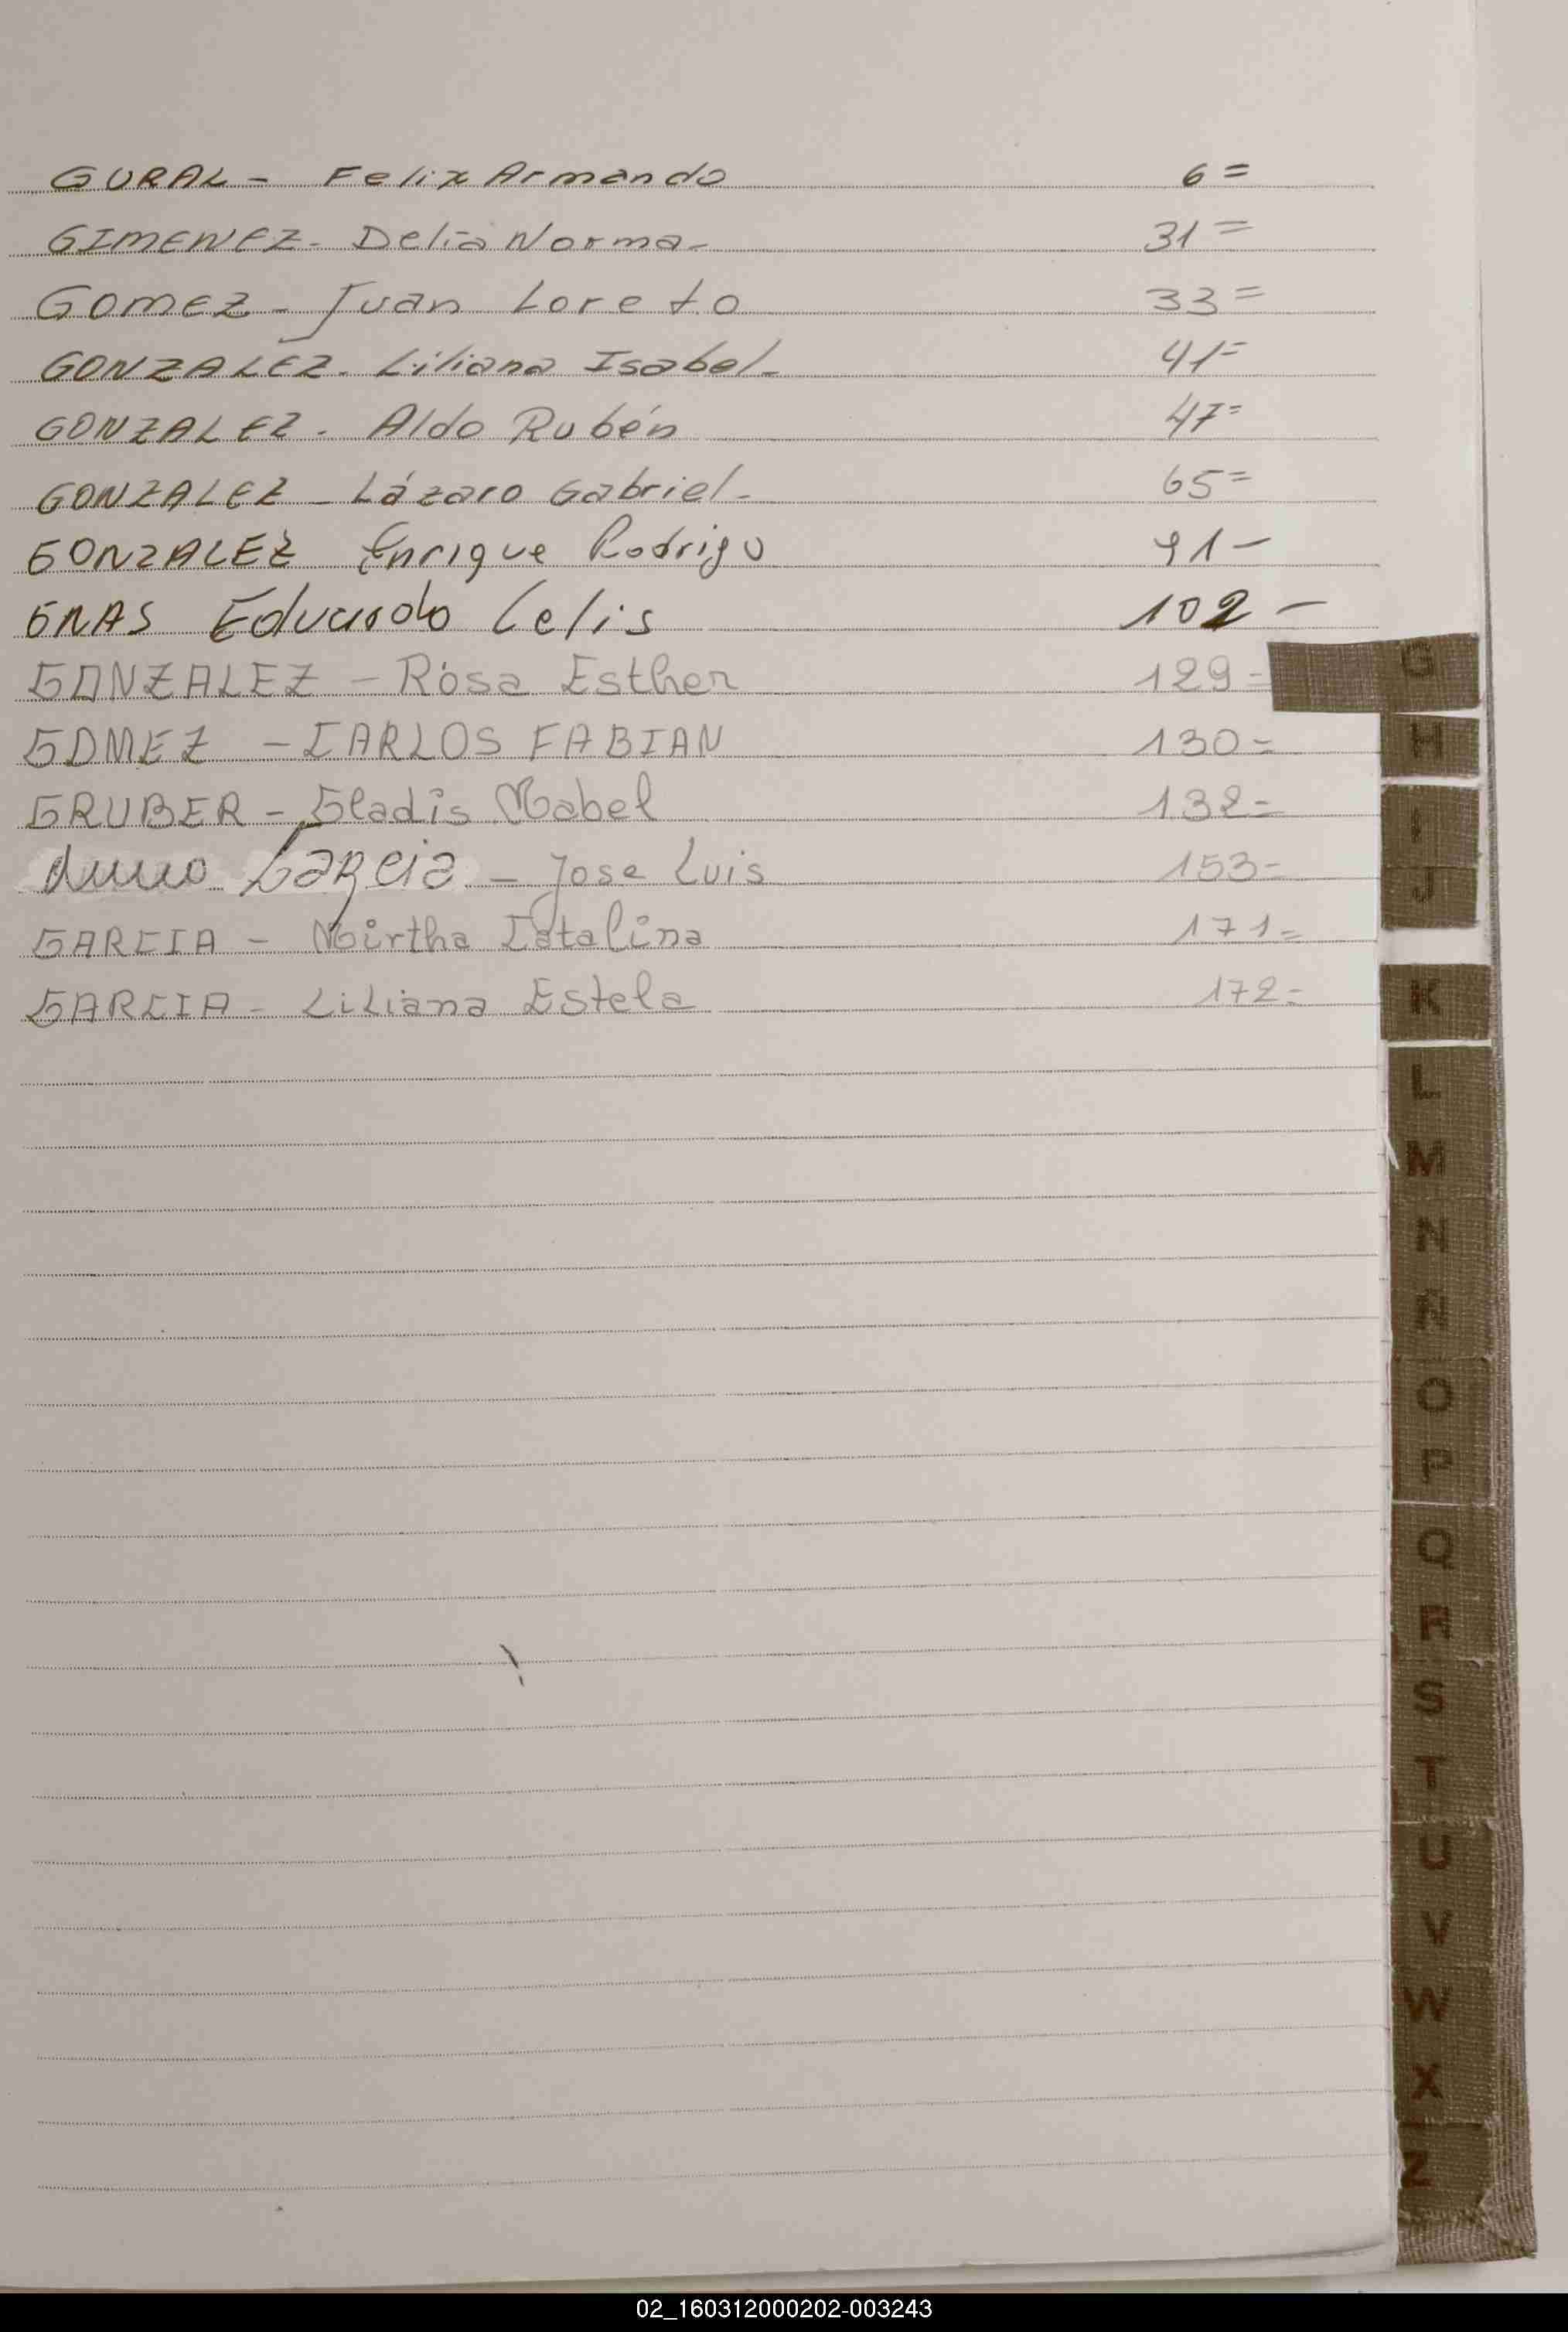 GURAL - Felix Armando 6=
GIMENEZ - Delia Norma - 31=
GOMEZ - Juan Loreto 33=
GONZALEZ - Liliana Isabel - 41=
GONZALEZ - Aldo Rubén 47=
GONZALEZ - Lázaro Gabriel - 65=
GONZALEZ Enrique Rodrigo 91-
GNAS Eduardo Celis 102-
GONZALEZ - Rosa Esther 129=
GOMEZ - CARLOS FABIAN 130=
GRUBER - Gladis Mabel 132=
Garcia - Jose Luis 153=
GARCIA - Mirtha Catalina 171=
GARCIA - Liliana Estela 172=
G
H
I
J
K
L
M
N
Ñ
O
P
Q
R
S
T
U
V
W
X
Z
02_160312000202-003243